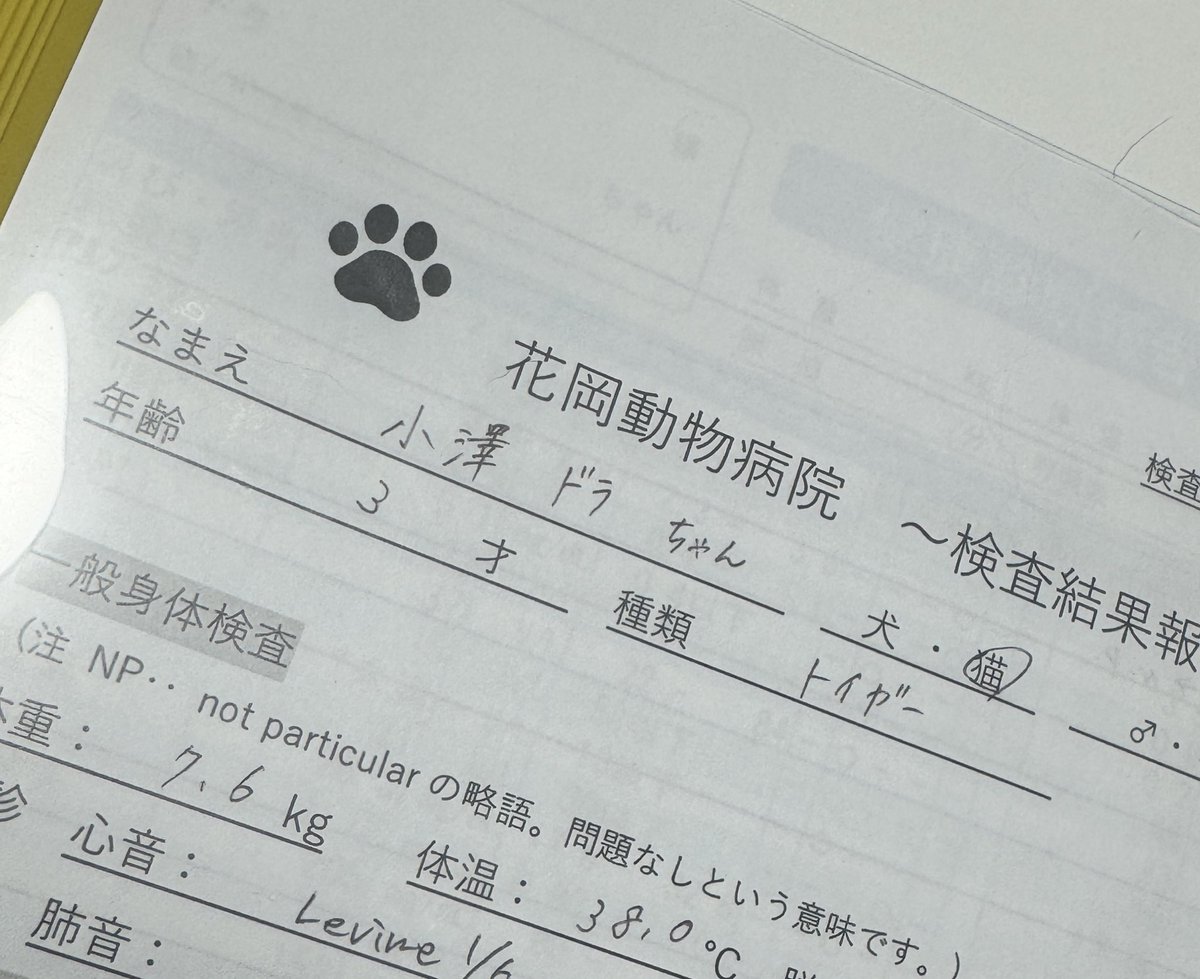 花岡動物病院 ～検査結果報
検査
なまえ 小澤 ドラ ちゃん 犬・猫 ♂・
年齢 3 才 種類 トイガー
一般身体検査
(注 NP‥ not particular の略語。問題なしという意味です。)
体重： 7.6 kg 体温： 38.0 ℃
診 心音： Levine 1/6
肺音：